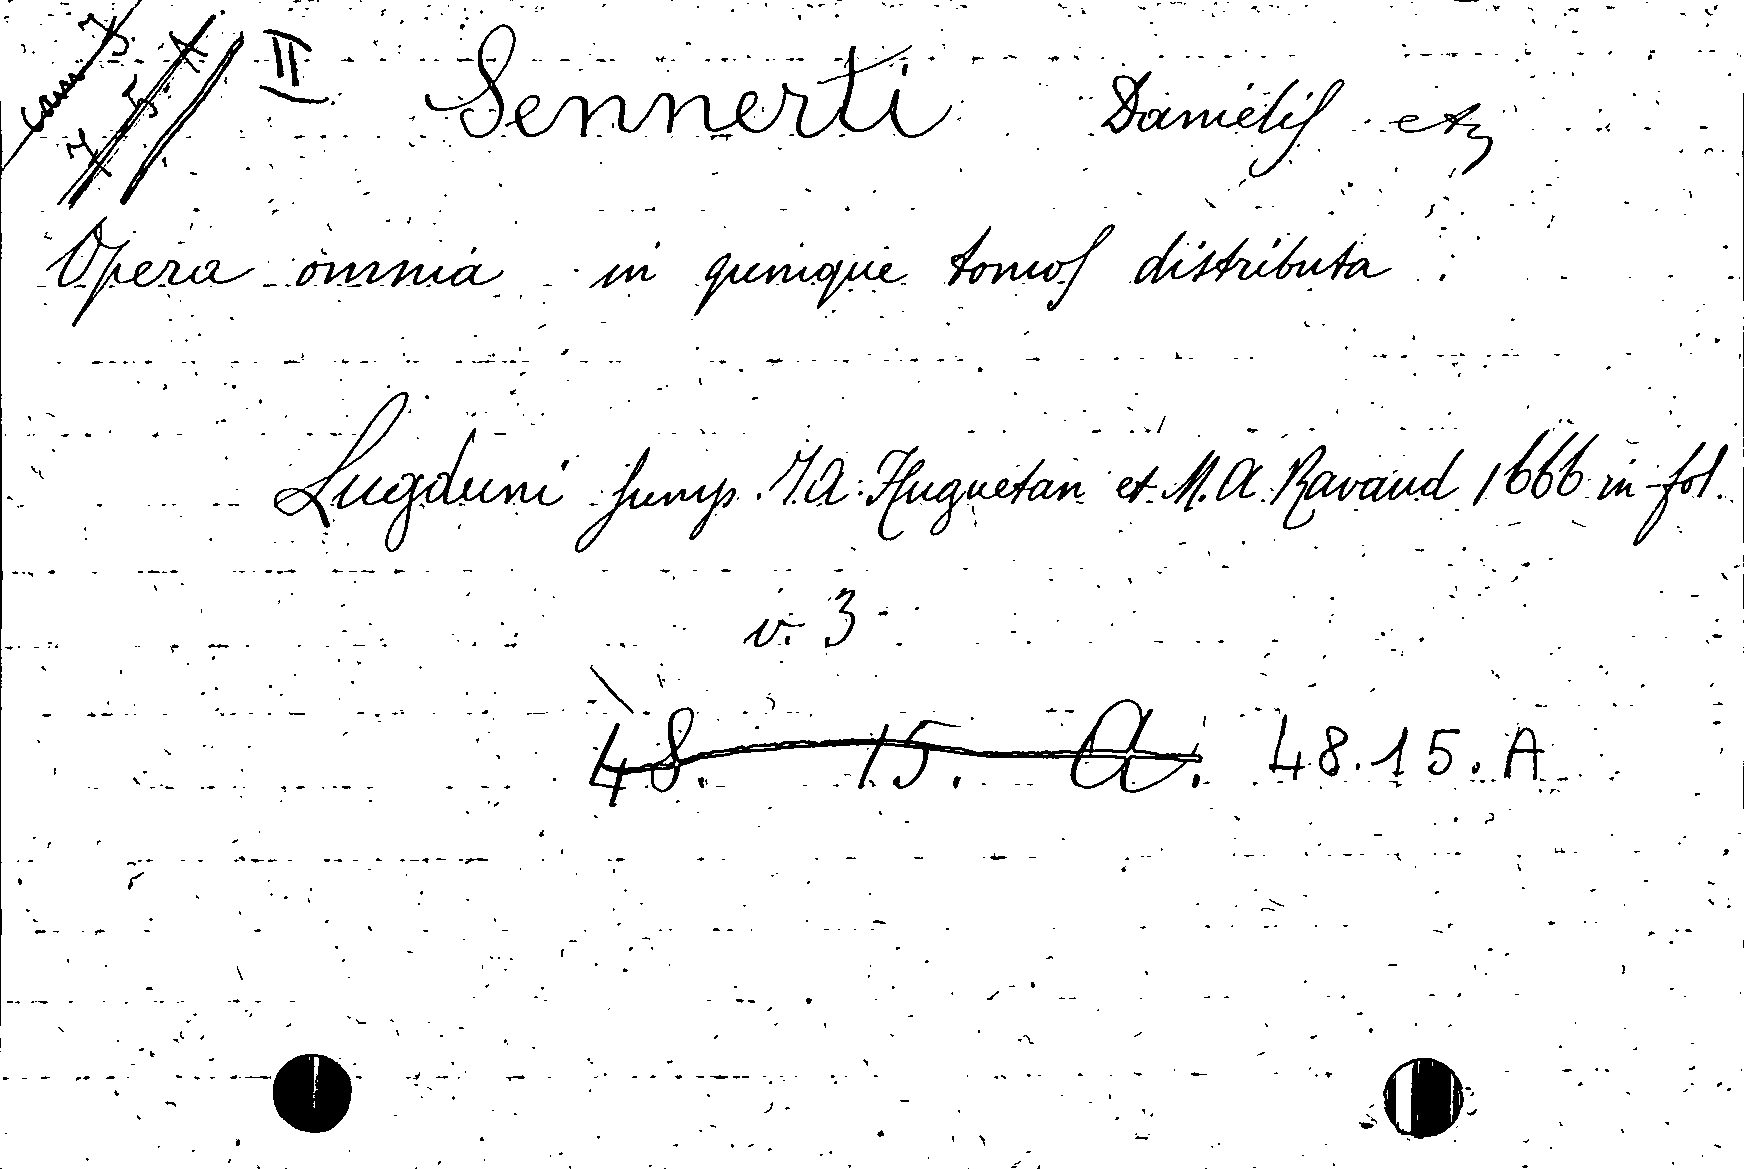 II Sennerti Danielis etz
Opera omnia in quinque tomos distributa
Lugduni sump. J. A. Huguetan et M. A. Ravaud 1666 in fol.
v. 3
48. 15. A. 48.15.A